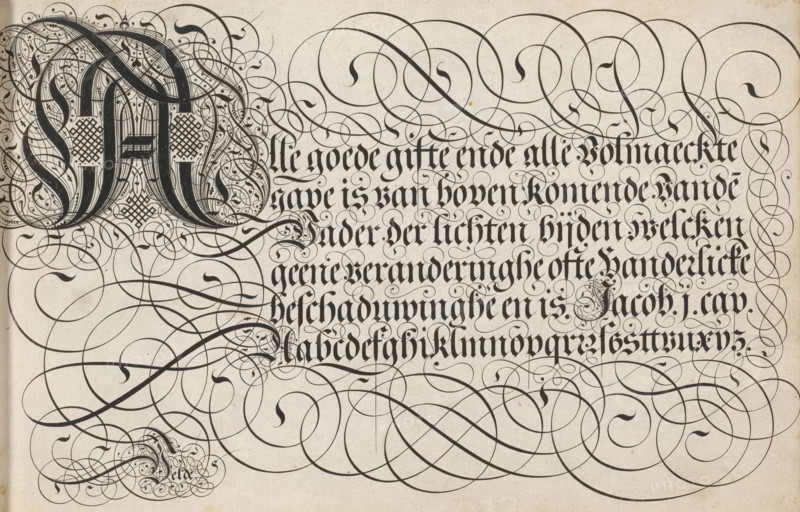 Alle goede gifte ende alle Volmaeckte
gave is van boven komende Vandē
Vader der lichten bijden welcken
geene veranderinghe ofte Handerlicke
beschaduwinghe en is. Jacob. j. cap.
Aabcdefghiklmnopqrrzſsßttvuxyz.
Velde.